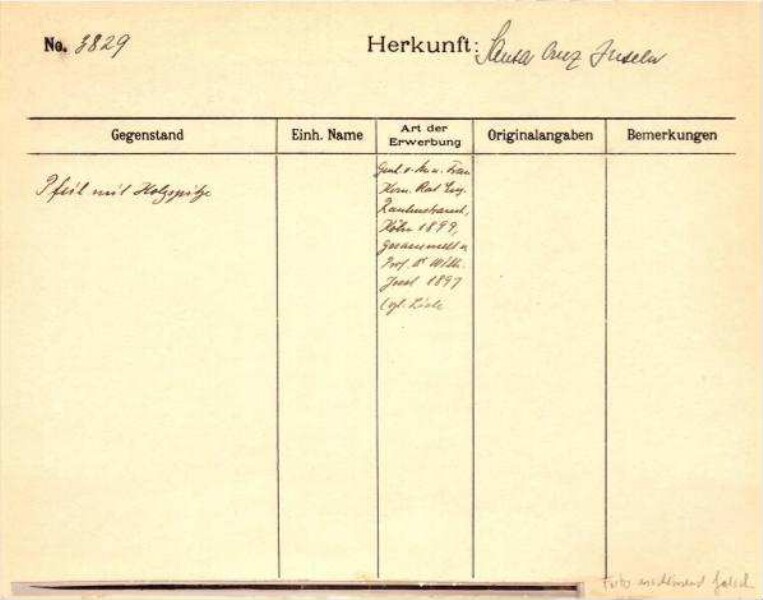 No. 3829
Herkunft: Santa Cruz Inseln
Gegenstand
Einh. Name
Art der
Erwerbung
Originalangaben
Bemerkungen
Pfeil mit Holzspitze
Frau
Rat Eug.
Rautenstrauch,
Köln 1899,
gesammelt v.
Prof. Dr Wilh.
Joest 1897
falsch